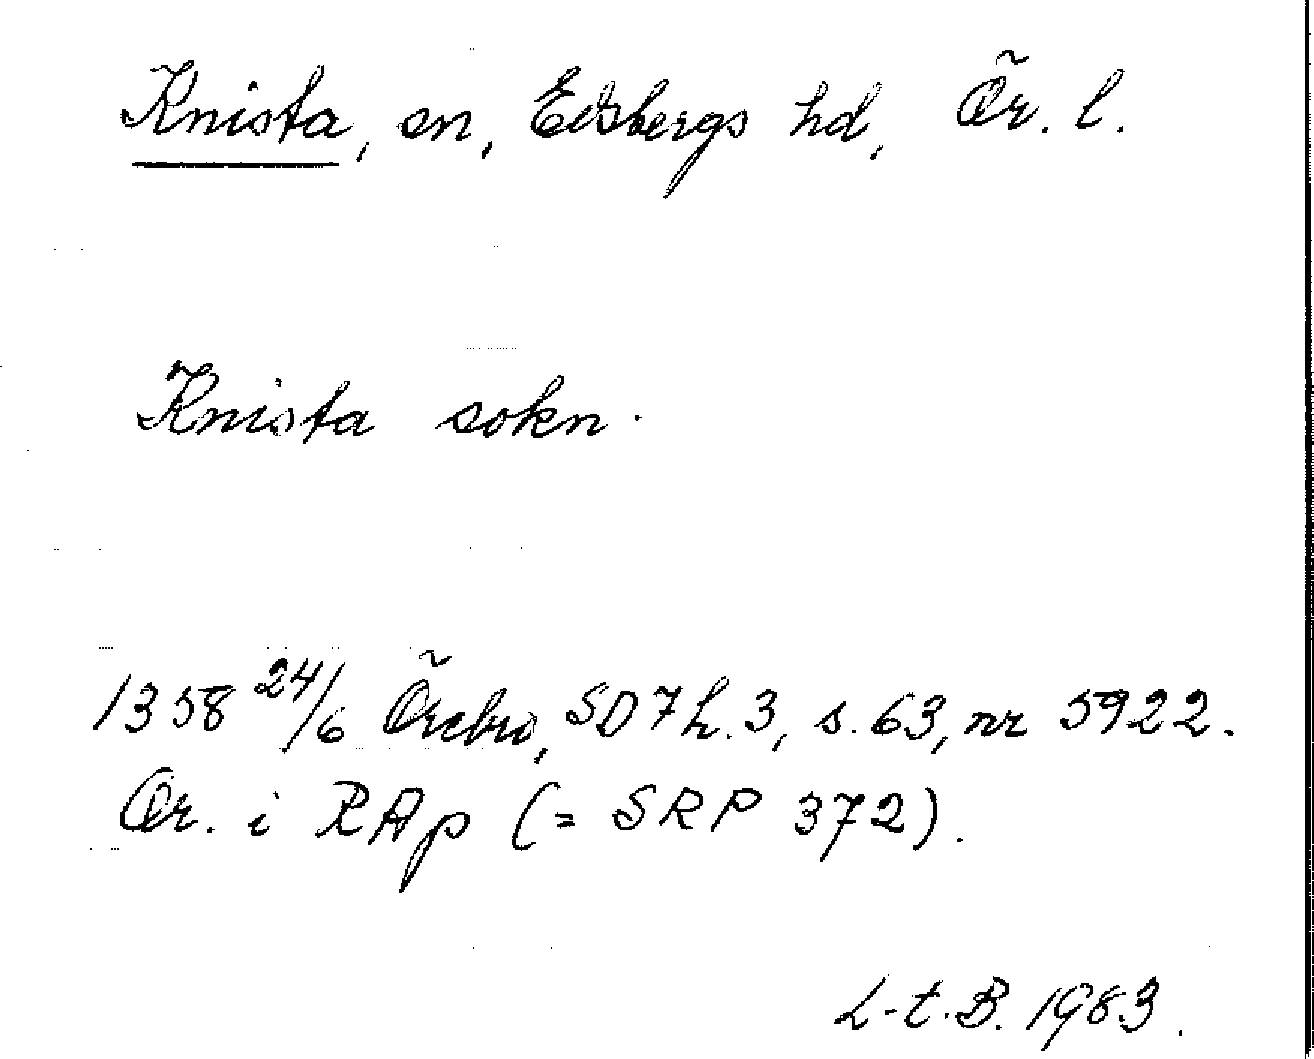 Knista, sn, Edsbergs hd, Ör. l.
Knista sokn.
1358 24/6 Örebro, SD 7 h. 3, s. 63, nr 5922.
Or. i RAp (= SRP 372).
L-t. B. 1983.